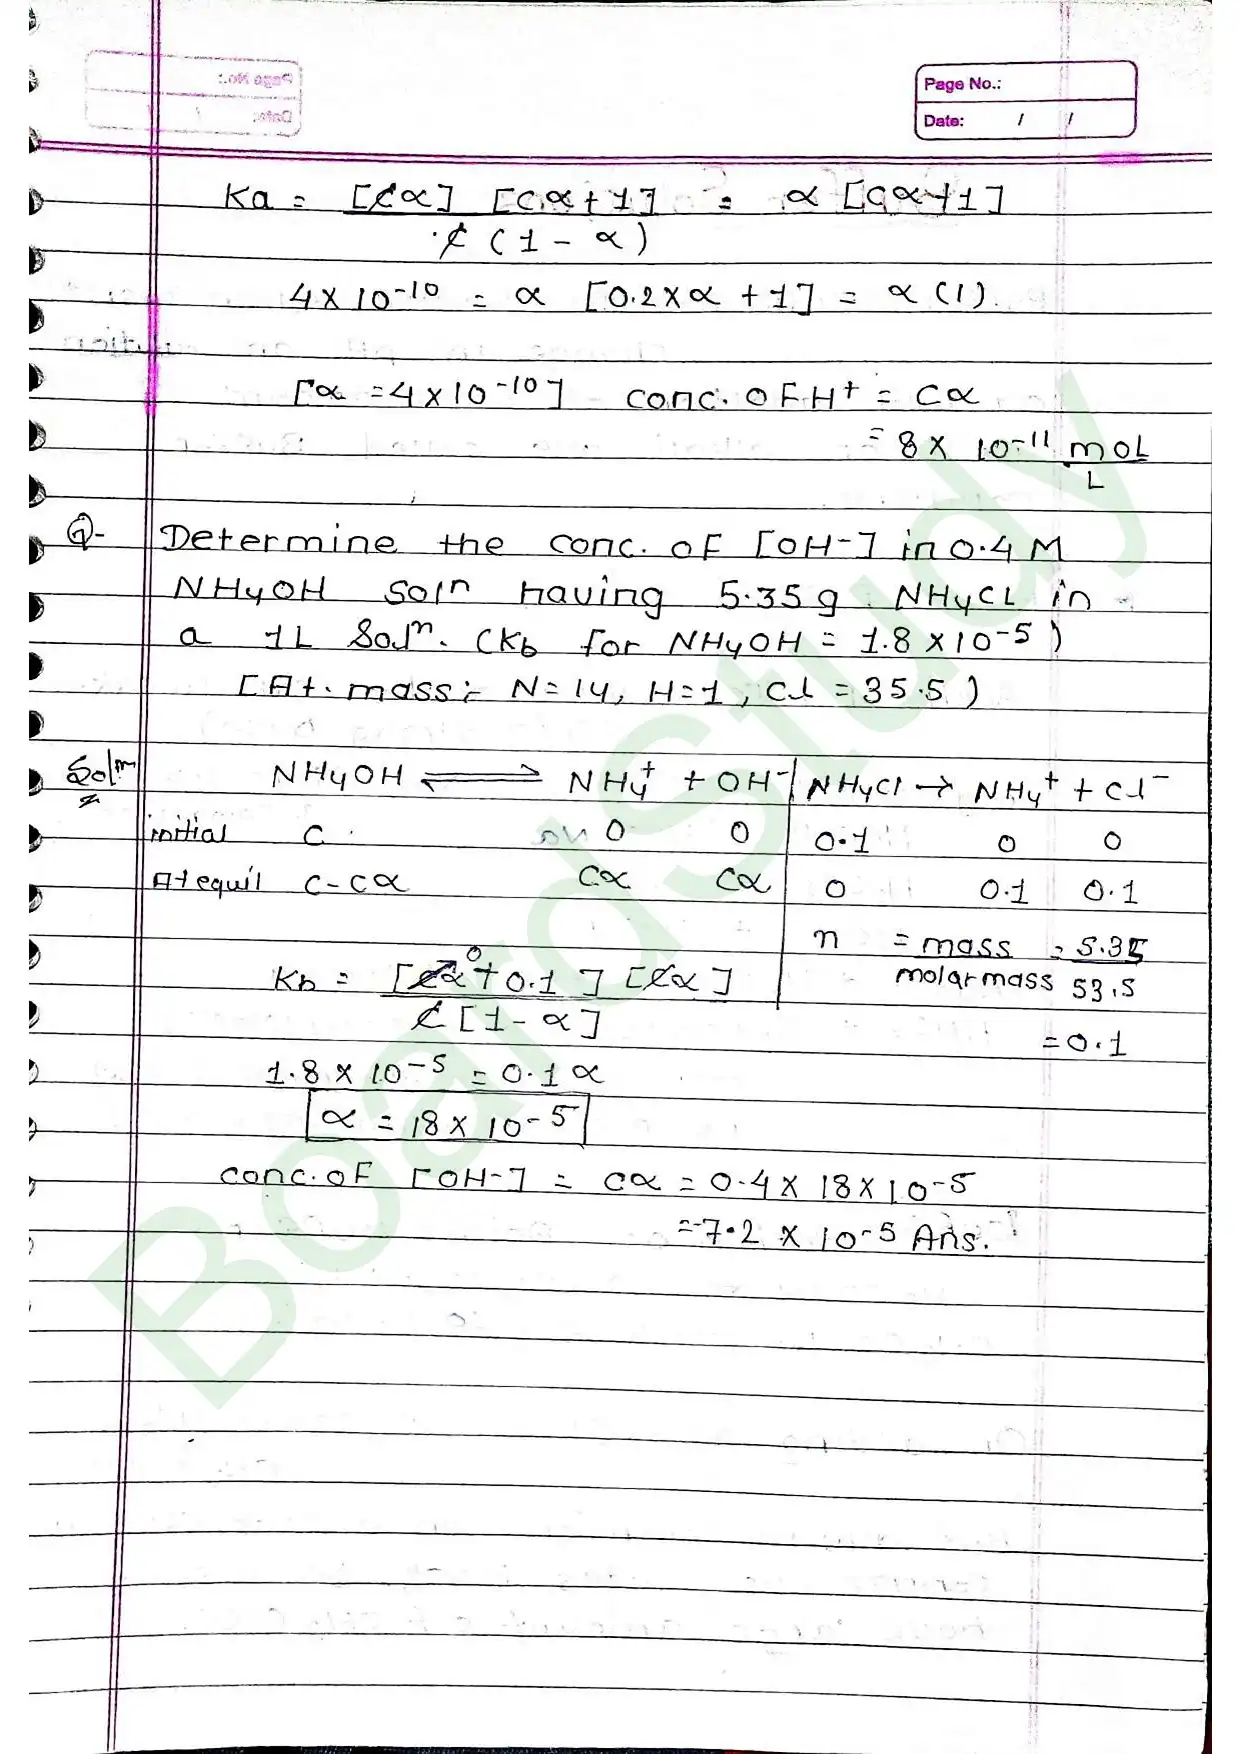 Page No.:
Date: / /
Ka = [Cα] [Cα+1] = α [Cα+1]
C (1 - α)
4 × 10-10 = α [0.2×α + 1] = α (1)
[α = 4 × 10-10] conc. OF H+ = Cα
= 8 × 10-11 mol
L
Q- Determine the conc. of [OH-] in 0.4 M
NH4OH Soln having 5.35 g NH4Cl in
a 1L Soln. (Kb for NH4OH = 1.8 × 10-5)
[At. mass:- N = 14, H = 1, Cl = 35.5)
Soln NH4OH ⇌ NH4+ + OH- | NH4Cl → NH4+ + Cl-
initial C 0 0 0.1 0 0
At equil C-Cα Cα Cα 0 0.1 0.1
n = mass = 5.35
molar mass 53.5
= 0.1
Kb = [Cα + 0.1] [Cα]
0
C [1 - α]
1.8 × 10-5 = 0.1 α
α = 18 × 10-5
conc. of [OH-] = cα = 0.4 × 18 × 10-5
= 7.2 × 10-5 Ans.
BoardStudy